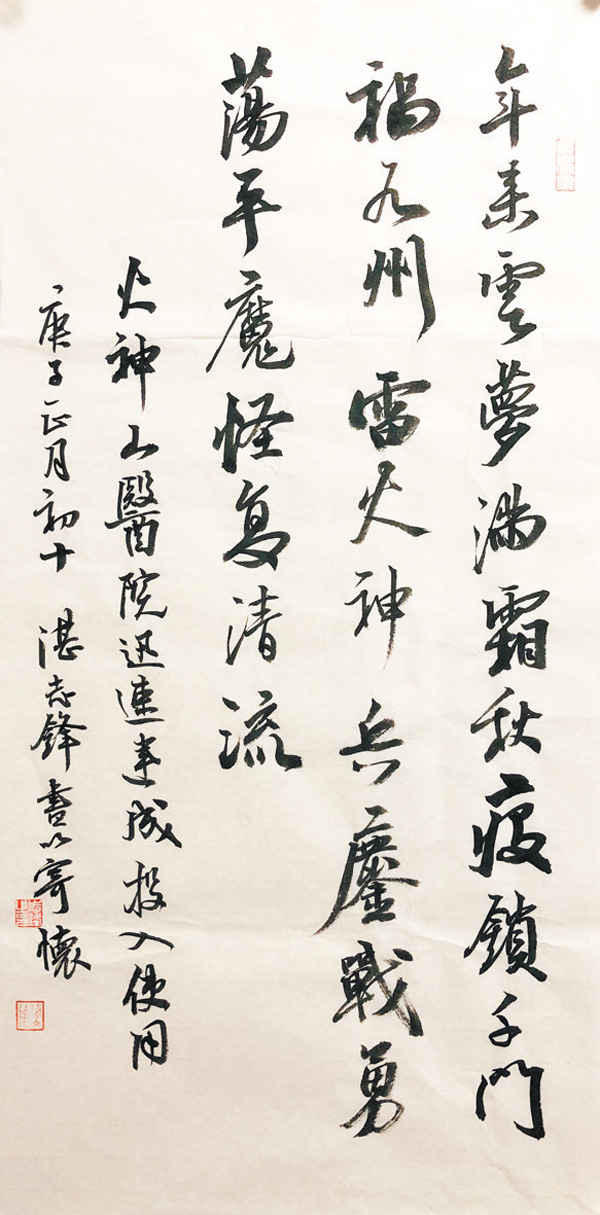 年来雲夢满霜秋疫鎖千門
禍九州雷火神兵鏖戰勇
蕩平魔怪复清流
火神山醫院迅速建成投入使用
庚子正月初十 湛志鋒書以寄懷